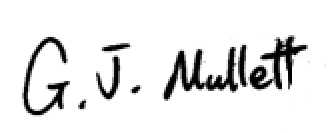 G. J. Mullett